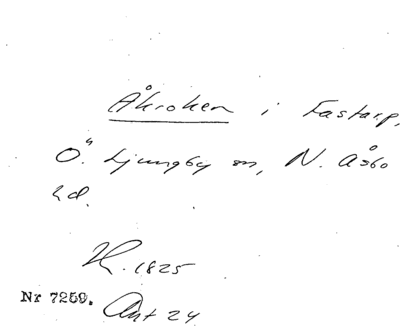 Åkroken i Fastarp,
Ö. Ljungby sn, N. Åsbo
hd.
H. 1825
Nr 7259. Ant 24